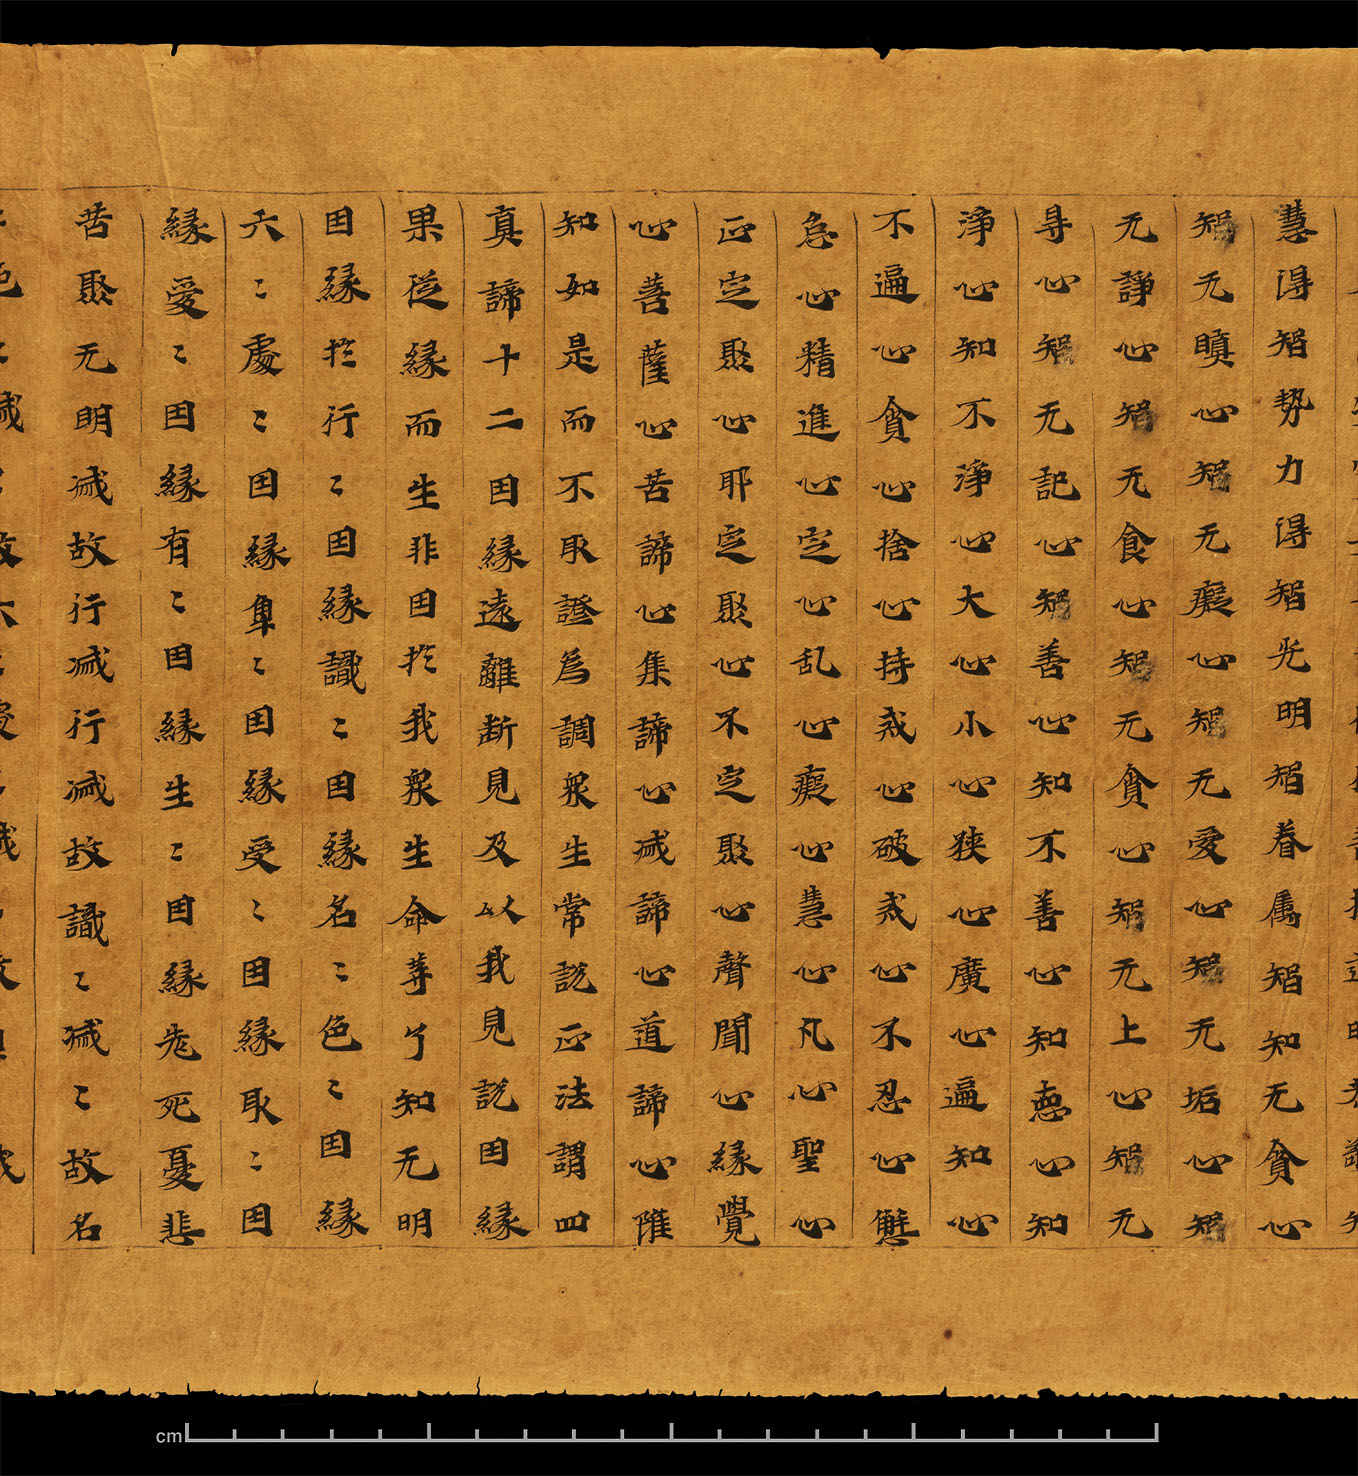 慧得智勢力得智光明智眷属智知无貪心
知无瞋心知无癡心知无愛心知无垢心知
无諍心知无食心知无貪心知无上心知无
㝵心知无記心知善心知不善心知心知
淨心知不淨心大心小心狹心廣心遍知心
不遍心貪心捨心持戒心破戒心不忍心懈
怠心精進心定心乱心癡心慧心凡心聖心
正定聚心耶定聚心不定聚心聲聞心緣覺
心菩薩心苦諦心集諦心滅諦心道諦心雖
知如是而不取證為調衆生常説正法謂四
真諦十二因緣遠離断見及以我見説因緣
果從緣而生非因於我衆生命等了知无明
因緣於行〻因緣識〻因緣名〻色〻因緣
六〻處〻因緣觸〻因緣受〻因緣取〻因
緣愛〻因緣有〻因緣生〻因緣老死憂悲
苦聚无明滅故行滅行滅故識〻滅〻故名